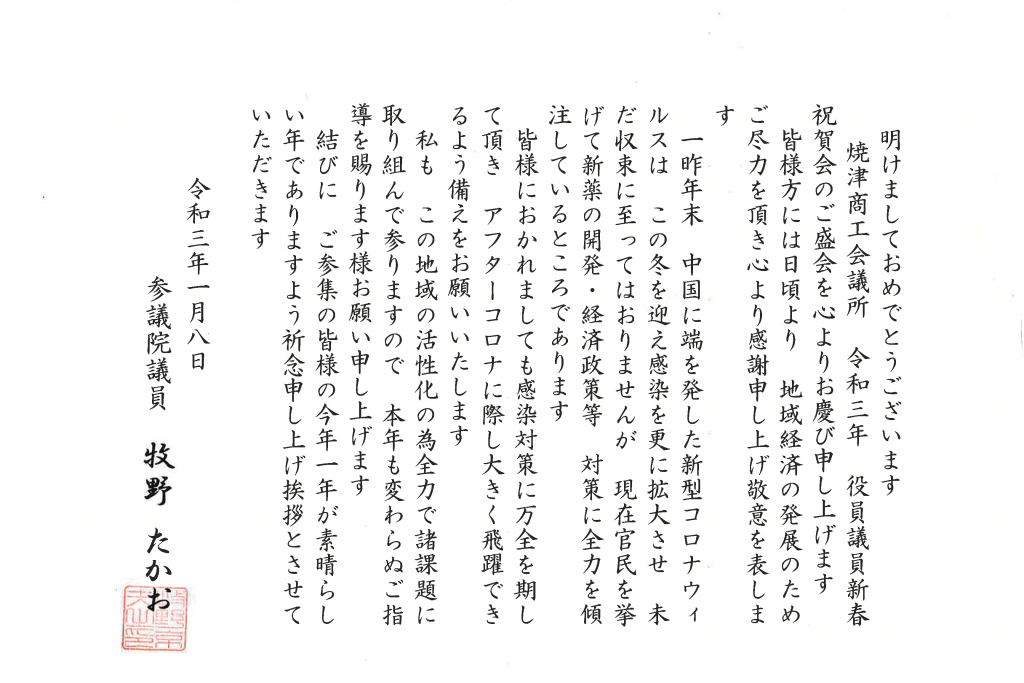 明けましておめでとうございます
焼津商工会議所　令和三年　役員議員新春
祝賀会のご盛会を心よりお慶び申し上げます
皆様方には日頃より　地域経済の発展のため
ご尽力を頂き心より感謝申し上げ敬意を表しま
す
一昨年末　中国に端を発した新型コロナウィ
ルスは　この冬を迎え感染を更に拡大させ　未
だ収束に至ってはおりませんが　現在官民を挙
げて新薬の開発・経済政策等　対策に全力を傾
注しているところであります
皆様におかれましても感染対策に万全を期し
て頂き　アフターコロナに際し大きく飛躍でき
るよう備えをお願いいたします
私も　この地域の活性化の為全力で諸課題に
取り組んで参りますので　本年も変わらぬご指
導を賜ります様お願い申し上げます
結びに　ご参集の皆様の今年一年が素晴らし
い年でありますよう祈念申し上げ挨拶とさせて
いただきます
令和三年一月八日
参議院議員　牧野　たかお